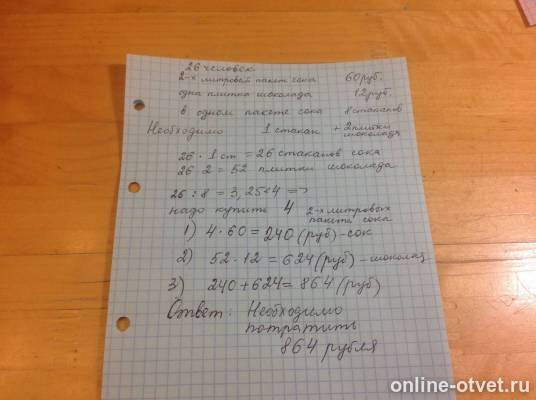 26 человек
2-х литровый пакет сока 60 руб.
одна плитка шоколада 12 руб.
в одном пакете сока 8 стаканов
Необходимо 1 стакан + 2 плитки
шоколада
26 · 1 ст = 26 стаканов сока
26 · 2 = 52 плитки шоколада
26 : 8 = 3,25 < 4 =>
надо купить 4 2-х литровых
пакета сока
1) 4 · 60 = 240 (руб) - сок
2) 52 · 12 = 624 (руб) - шоколад
3) 240 + 624 = 864 (руб)
Ответ: Необходимо
потратить
864 рубля
online-otvet.ru